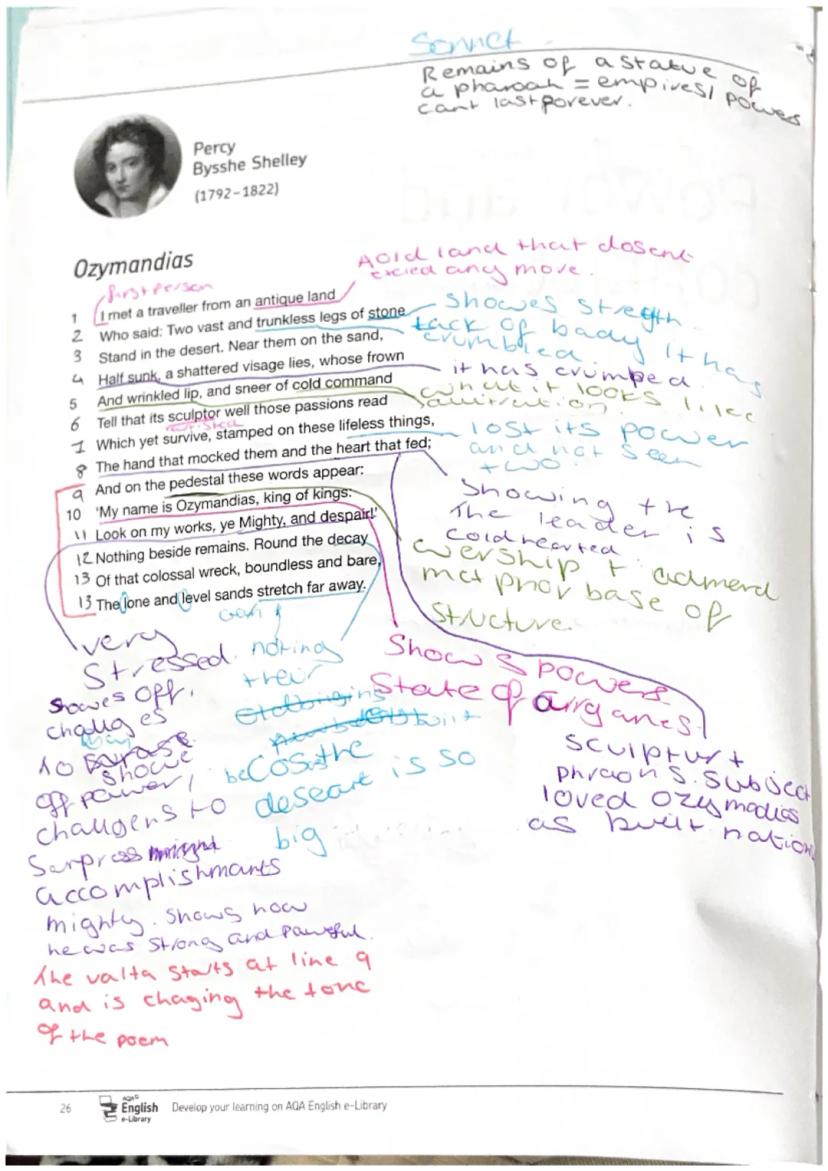 Sonnet
Remains of a statue of
a pharoah = empires/ powers
cant last forever.
Percy
Bysshe Shelley
(1792–1822)
Ozymandias
first person
A old land that dosent
any more.
1 I met a traveller from an antique land
2 Who said: Two vast and trunkless legs of stone
3 Stand in the desert. Near them on the sand,
4 Half sunk, a shattered visage lies, whose frown
5 And wrinkled lip, and sneer of cold command
6 Tell that its sculptor well those passions read
7 Which yet survive, stamped on these lifeless things,
8 The hand that mocked them and the heart that fed;
9 And on the pedestal these words appear:
10 'My name is Ozymandias, king of kings:
11 Look on my works, ye Mighty, and despair!'
12 Nothing beside remains. Round the decay
13 Of that colossal wreck, boundless and bare,
13 The lone and level sands stretch far away.
showes stregth
lack of body it has
crumbled
it has crumped
what it looks like
lost its power
and not seen
two
Showing the
The leader is
cold hearted
wership + admerd
metphor base of
structure.
Shows powers
State of arryganes
sculptur +
phraohs. subject
loved ozymadias
as built nation
very
Stressed.
showes off.
challges
to
showe
off power/
challgens to
accomplishmants
mighty. Shows how
he was strong and powerful.
noting
their
because the
deseart is so
big
The valta starts at line 9
and is chaging the tone
of the poem
26
AQA
English
e-Library
Develop your learning on AQA English e-Library